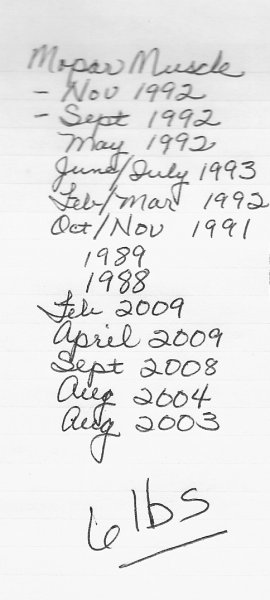 Mopar Muscle
- Nov 1992
- Sept 1992
May 1992
June/July 1993
Feb/Mar 1992
Oct/Nov 1991
1989
1988
Feb 2009
April 2009
Sept 2008
Aug 2004
Aug 2003
6 lbs